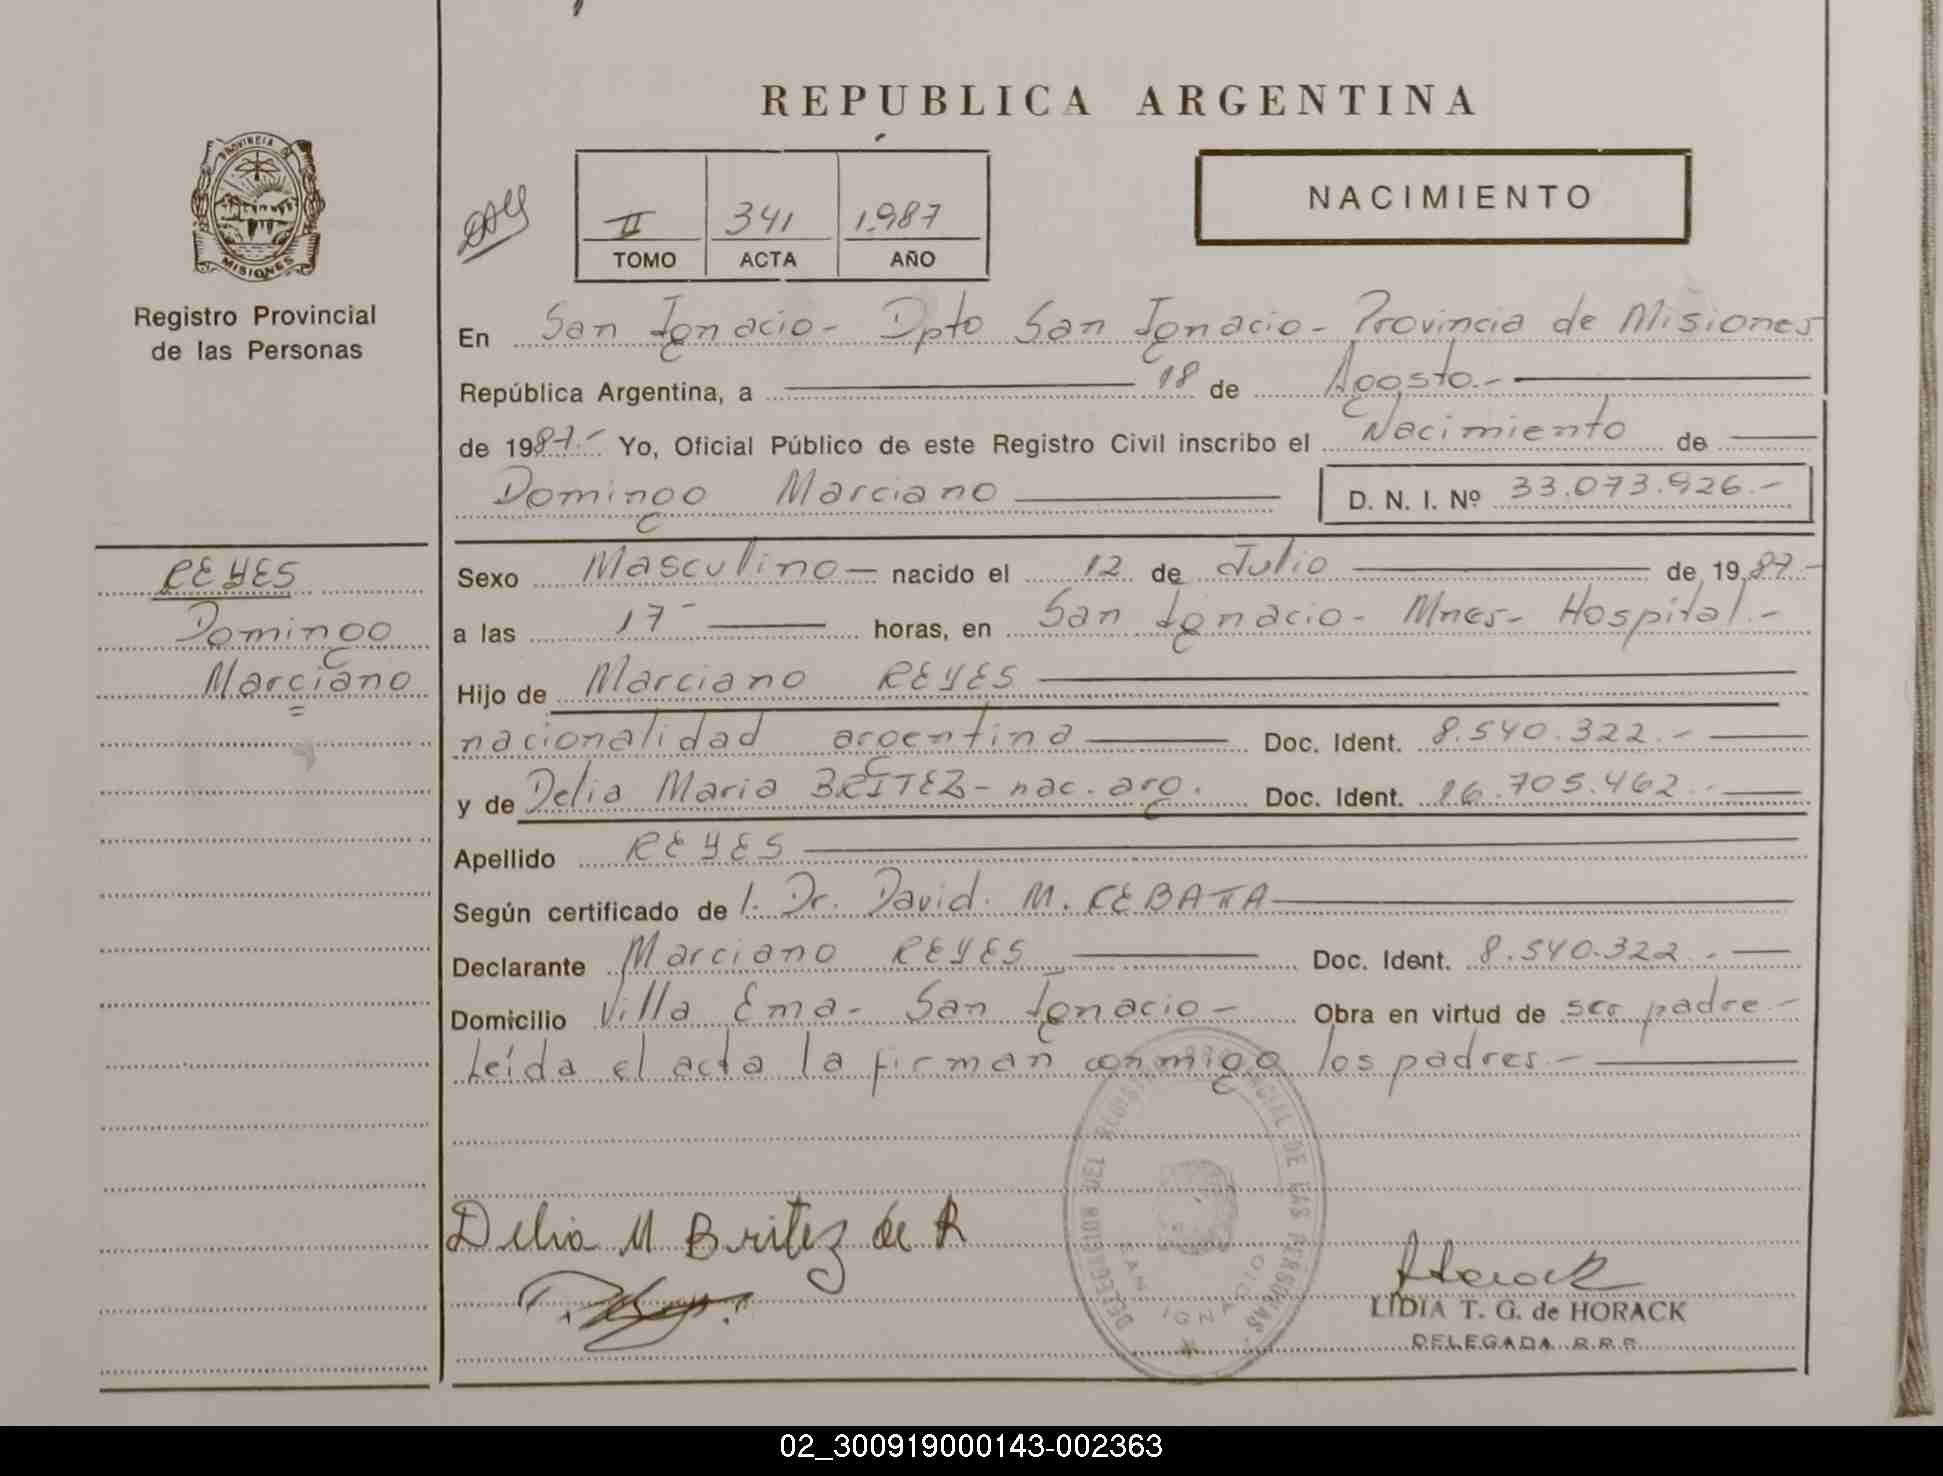 REPUBLICA ARGENTINA
PROVINCIA DE
MISIONES
Registro Provincial
de las Personas
II 341 1.987
TOMO ACTA AÑO
NACIMIENTO
En San Ignacio - Dpto San Ignacio - Provincia de Misiones
República Argentina, a 18 de Agosto.-
de 1987.- Yo, Oficial Público de este Registro Civil inscribo el Nacimiento de
Domingo Marciano D. N. I. Nº 33.073.926.-
REYES
Domingo
Marciano
Sexo Masculino - nacido el 12 de Julio de 1987-
a las 17- horas, en San Ignacio - Mnes - Hospital.-
Hijo de Marciano REYES
nacionalidad argentina Doc. Ident. 8.540.322.-
y de Delia Maria BRITEZ - nac. arg. Doc. Ident. 16.705.462.-
Apellido REYES
Según certificado de l. Dr. David. M.
Declarante Marciano REYES Doc. Ident. 8.540.322.-
Domicilio Villa Ema - San Ignacio - Obra en virtud de ser padre -
Leída el acta la firman conmigo los padres.-
Delia M Britez de R
DELEGACION DEL REGISTRO PROVINCIAL DE LAS PERSONAS
SAN IGNACIO
Horack
LIDIA T. G. de HORACK
DELEGADA R.P.P.
02_300919000143-002363